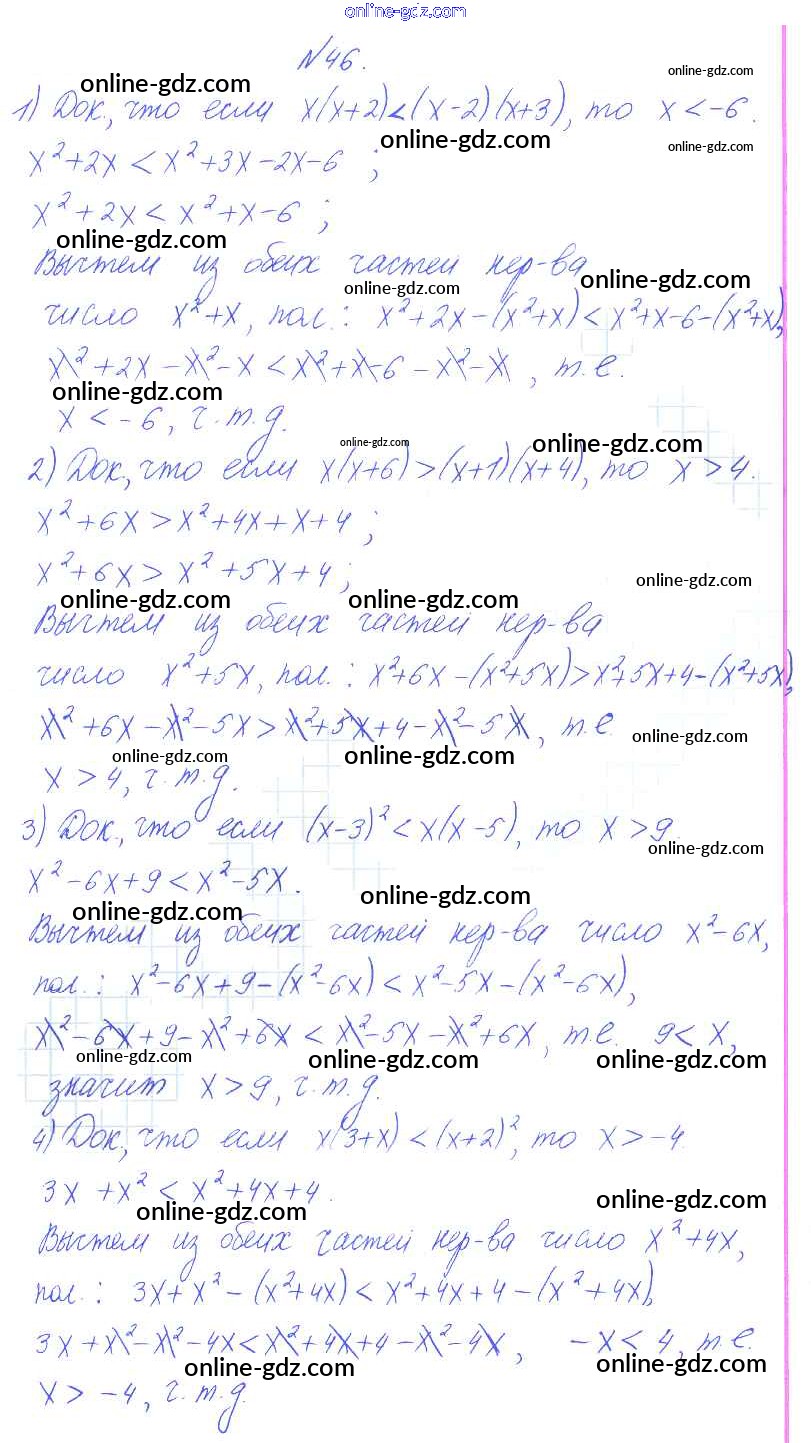 online-gdz.com
№46.
online-gdz.com online-gdz.com
1) Док., что если x(x+2)<(x-2)(x+3), то x<-6.
online-gdz.com online-gdz.com
x²+2x<x²+3x-2x-6 ;
x²+2x<x²+x-6 ;
online-gdz.com
Вычтем из обеих частей нер-ва
online-gdz.com online-gdz.com
число x²+x, пол.: x²+2x-(x²+x)<x²+x-6-(x²+x),
x²+2x-x²-x<x²+x-6-x²-x, т.е.
online-gdz.com
x<-6, ч.т.д.
online-gdz.com online-gdz.com
2) Док., что если x(x+6)>(x+1)(x+4), то x>4.
x²+6x>x²+4x+x+4 ;
x²+6x>x²+5x+4 ;
online-gdz.com
online-gdz.com online-gdz.com
Вычтем из обеих частей нер-ва
число x²+5x, пол.: x²+6x-(x²+5x)>x²+5x+4-(x²+5x),
x²+6x-x²-5x>x²+5x+4-x²-5x, т.е.
online-gdz.com online-gdz.com online-gdz.com
x>4, ч.т.д.
3) Док., что если (x-3)²<x(x-5), то x>9.
online-gdz.com
x²-6x+9<x²-5x.
online-gdz.com online-gdz.com
Вычтем из обеих частей нер-ва число x²-6x,
пол.: x²-6x+9-(x²-6x)<x²-5x-(x²-6x),
x²-6x+9-x²+6x<x²-5x-x²+6x, т.е. 9<x,
online-gdz.com online-gdz.com online-gdz.com
значит x>9, ч.т.д.
4) Док., что если x(3+x)<(x+2)², то x>-4.
3x+x²<x²+4x+4.
online-gdz.com online-gdz.com
Вычтем из обеих частей нер-ва число x²+4x,
пол.: 3x+x²-(x²+4x)<x²+4x+4-(x²+4x),
3x+x²-x²-4x<x²+4x+4-x²-4x, -x<4, т.е.
online-gdz.com online-gdz.com
x>-4, ч.т.д.